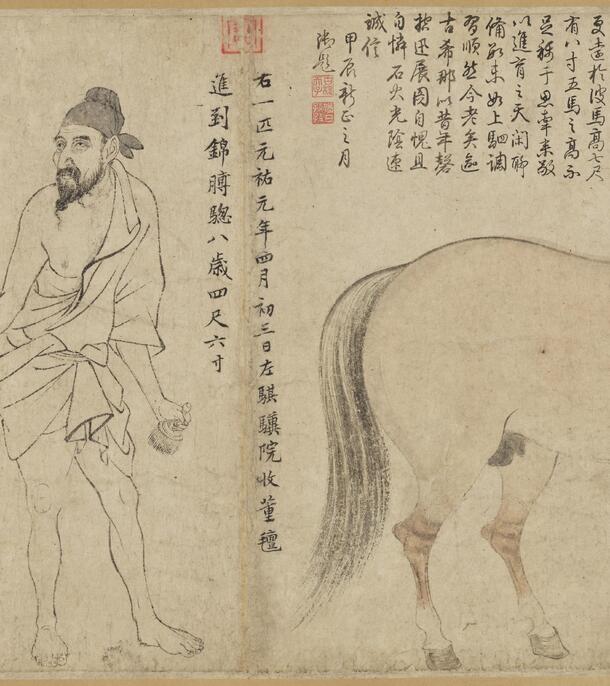 更遠於彼馬高七尺
有八寸五馬之高不
足稱于思牽来敬
以進育之天閑聊
備如上駟調
習順然今老矣逾
古希那以昔年磬
控迅展圖自愧且
自憐石火光陰速
誠信
甲辰新正之月
御題
古稀天子
右一匹元祐元年四月初三日左騏驥院收董氊
進到錦膊驄八歲四尺六寸